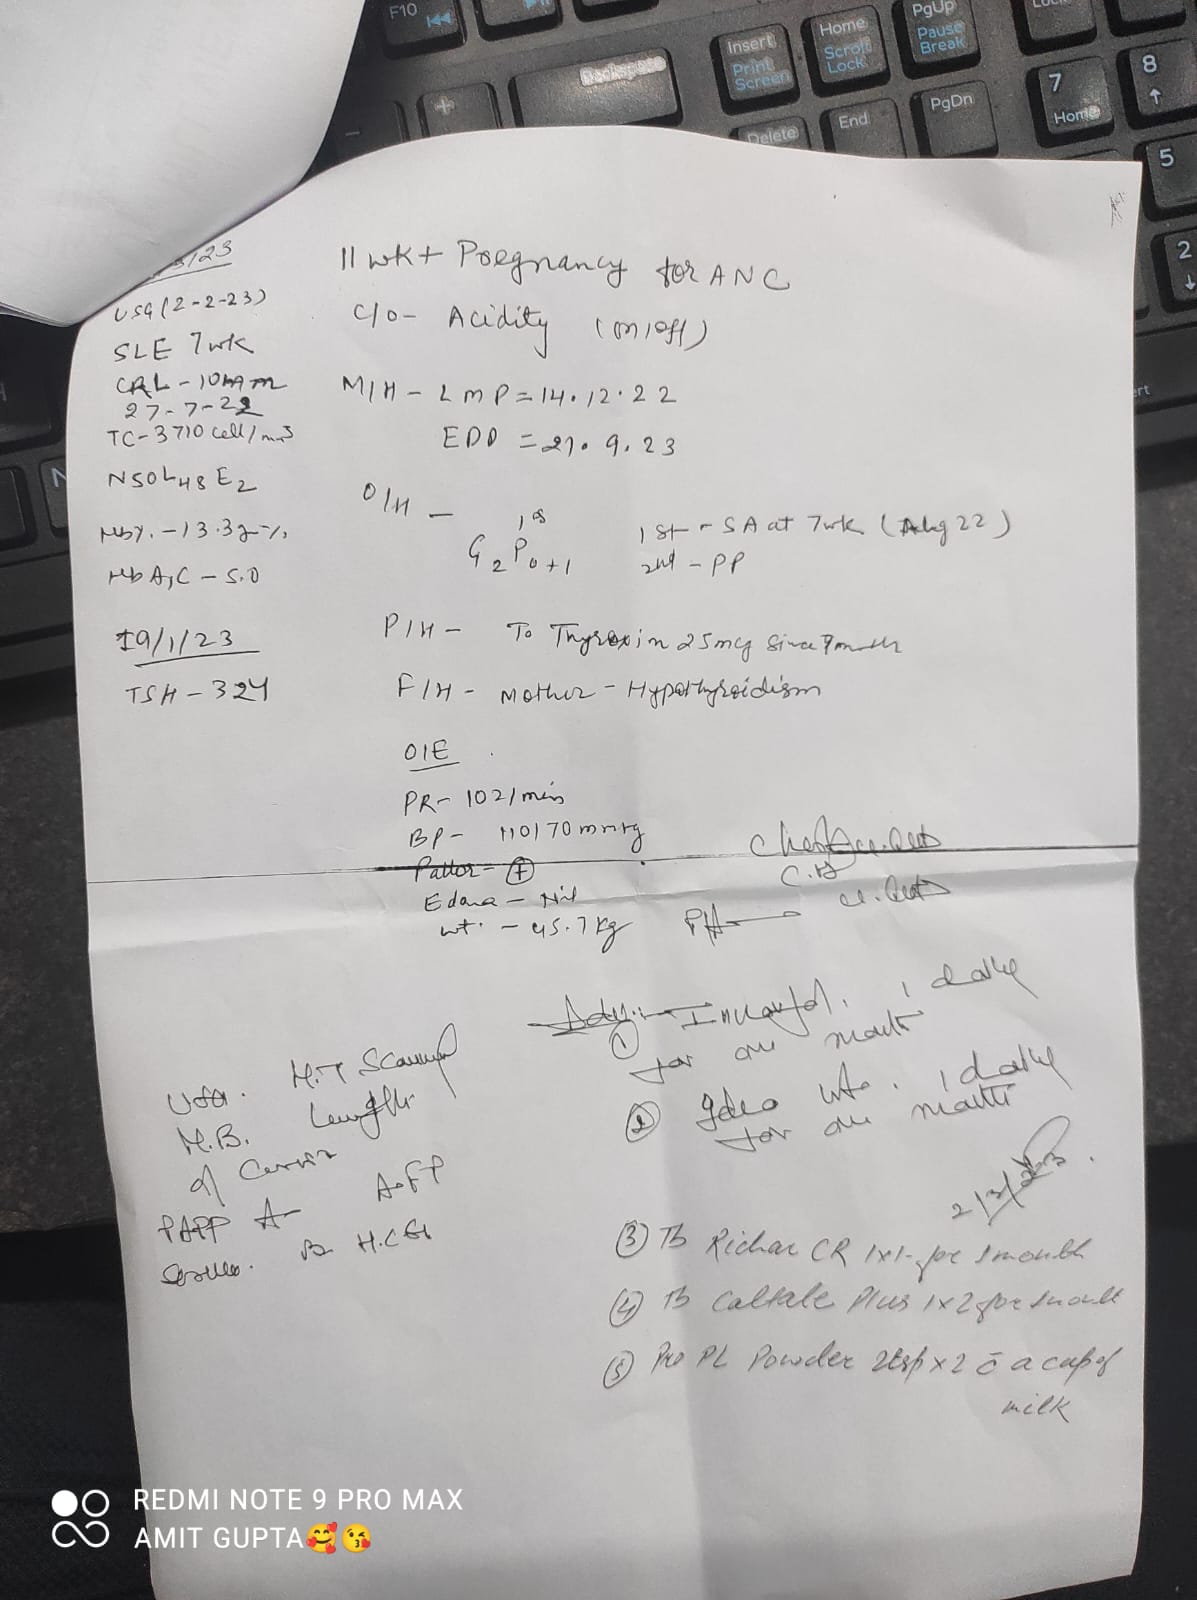 F10
Insert
Print
Screen
Home
Scroll
Lock
PgUp
Pause
Break
Backspace
Delete
End
PgDn
7
Home
8
5
2
3/23
USG (2-2-23)
SLE 7wk
CRL - 10mm
27-7-22
TC - 3710 cell/mm3
N50L48E2
Hb%. - 13.3g%
HbA1C - 5.0
19/1/23
TSH - 3.24
11 wk+ Pregnancy for ANC
C/O - Acidity (on/off)
M/H - LMP = 14.12.22
EDD = 21.9.23
O/H -
G2P0+1
1st - SA at 7wk (Aug 22)
2nd - PP
P/H - To Thyroxin 25mcg since month
F/H - Mother - Hypothyroidism
O/E
PR - 102/min
BP - 110/70 mmHg
Pallor - +
Edema - Nil
wt. - 45.7kg
Chest
P/A
Adv:-
① 1 daily
for one month
② 1 daily
for one month
2/3/23
③ Tb Richar CR 1x1 for 1 month
④ Tb Caltale Plus 1x2 for month
⑤ Pro PL Powder 2tsp x 2 c̄ a cup of
milk
USG. N.T Scan
N.B. Length
of Cervix
PAPP A- AFP
HCG
REDMI NOTE 9 PRO MAX
AMIT GUPTA🥰😘